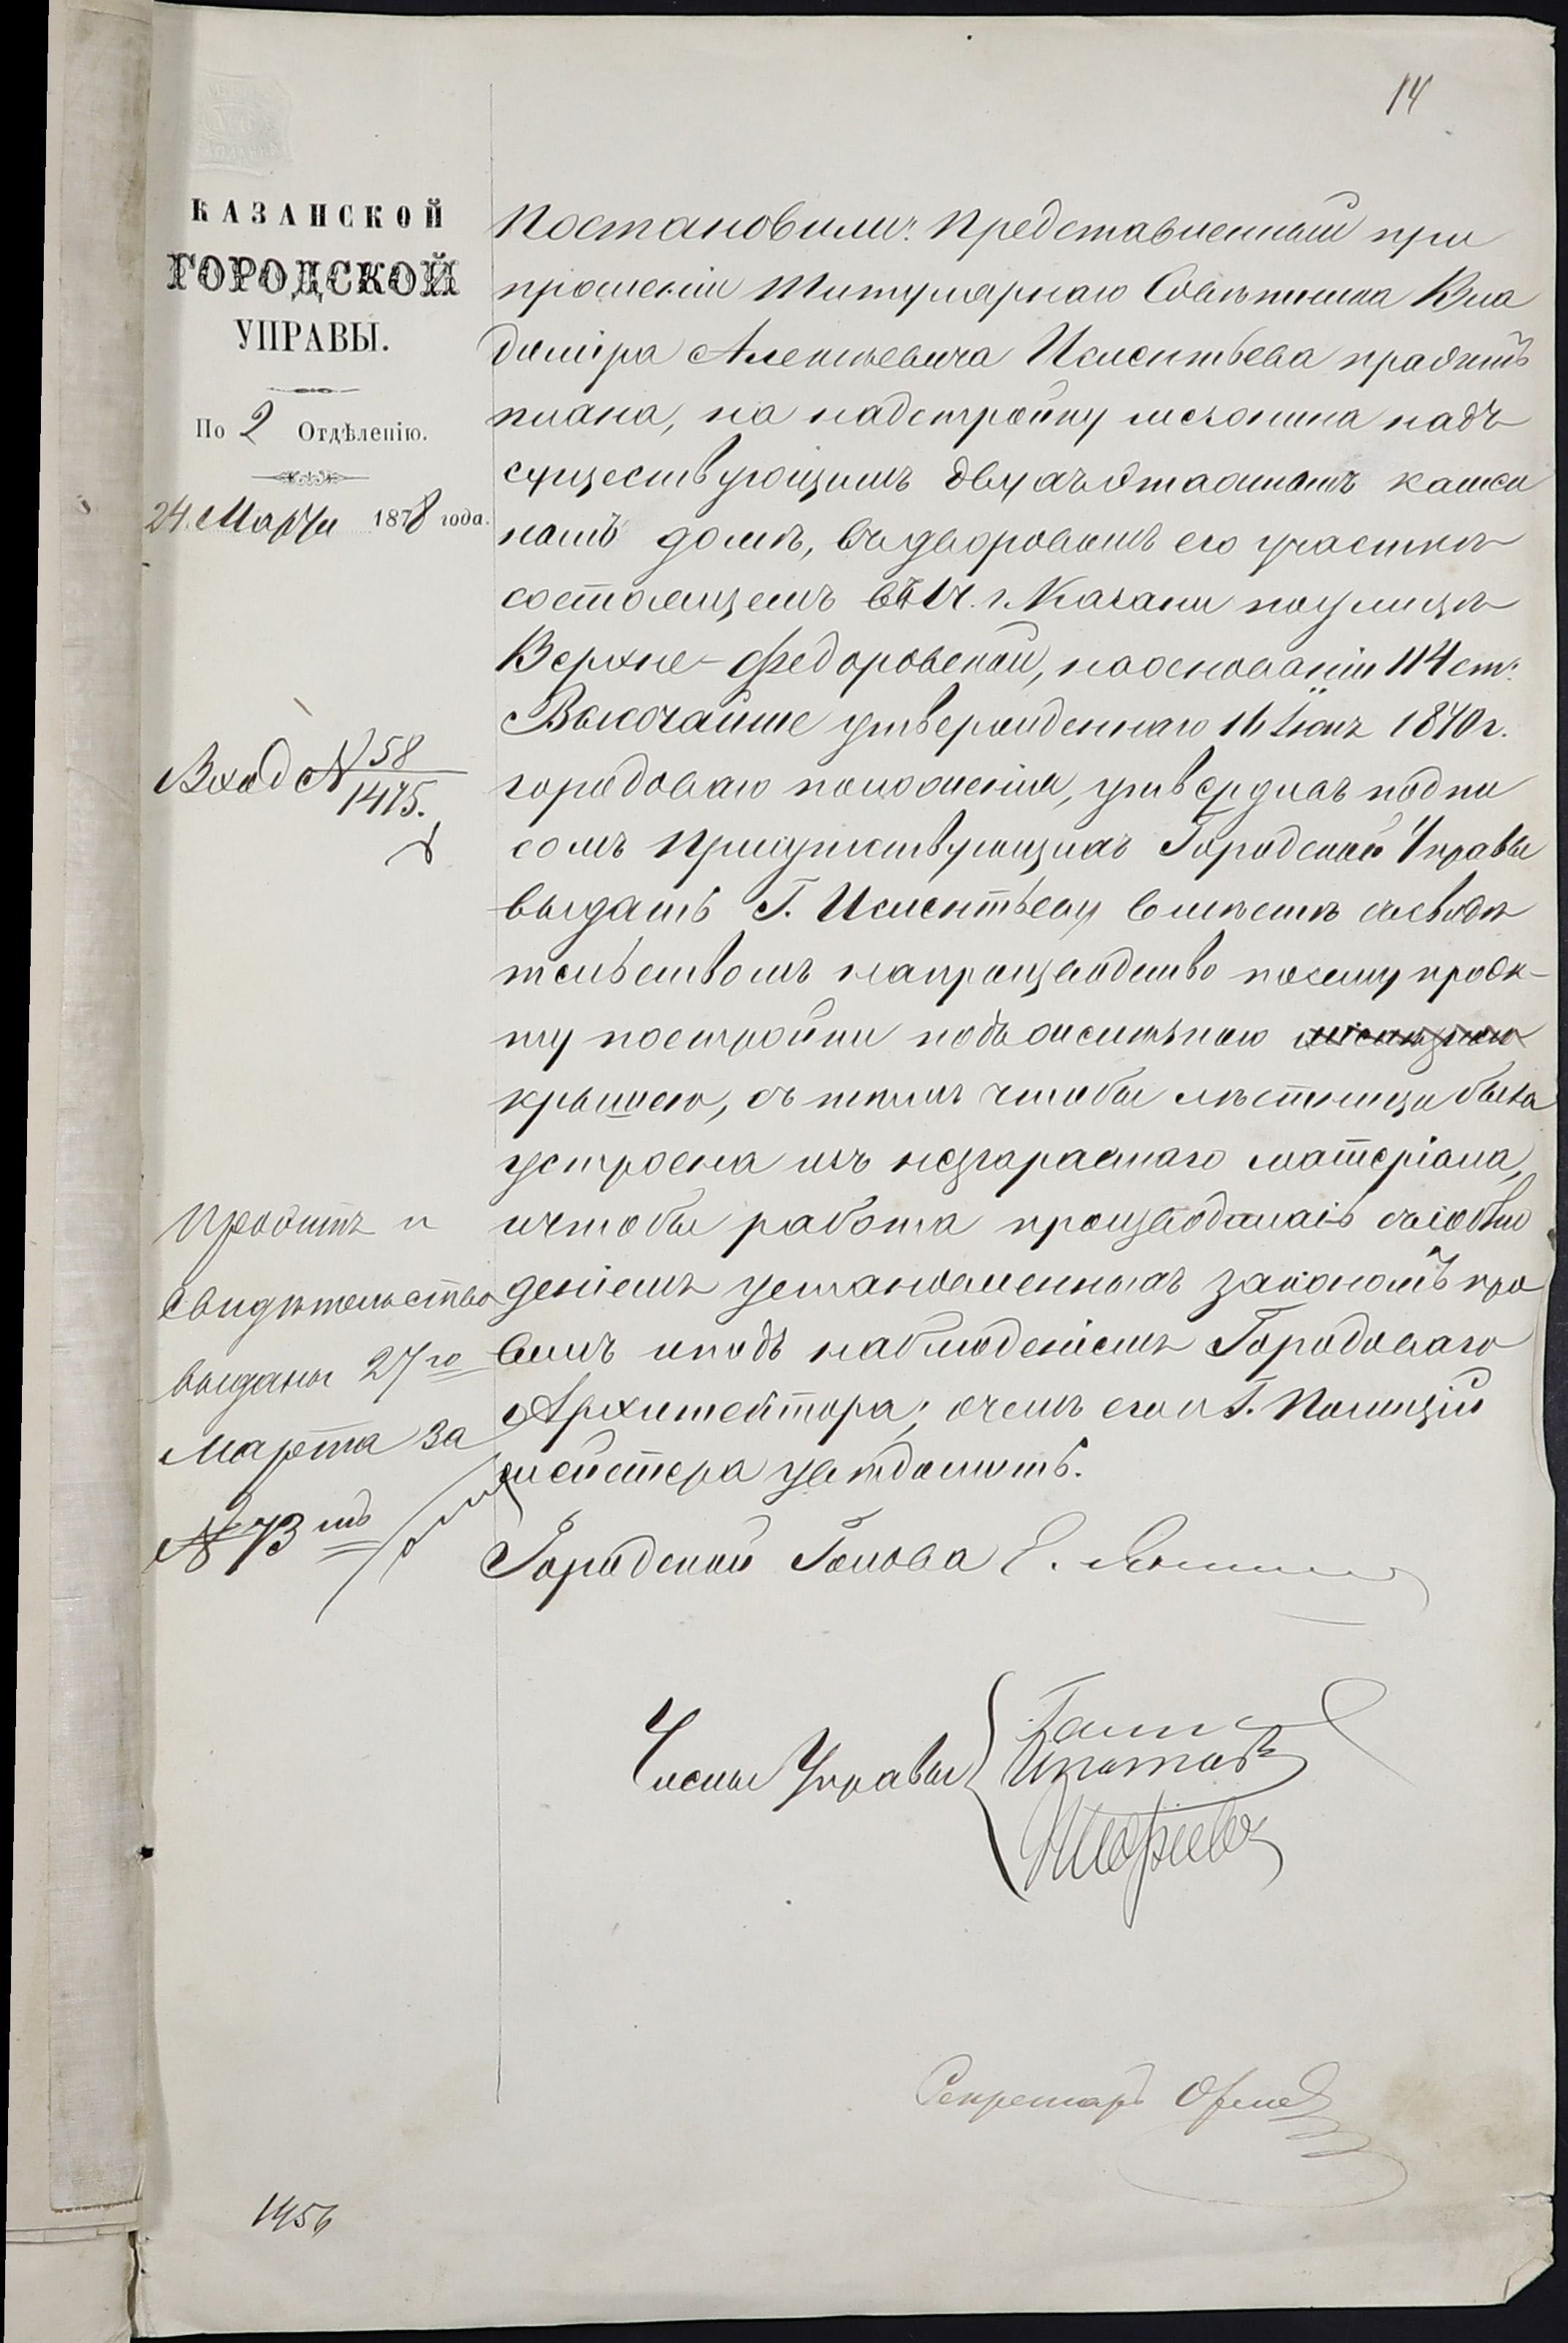 14
КАЗАНСКОЙ
ГОРОДСКОЙ
УПРАВЫ.
По 2 Отдѣленію.
24 Марта 1878 года.
Вход № 58
1475.
Проэктъ и
свидѣтельство
выданы 27го
Марта за
№ 73 мъ
Постановили: Представленный при
прошеніи Титулярнаго Совѣтника Вла
диміра Алексѣевича Исментьева проэктъ
плана, на надстройку мезонина надъ
существующимъ двухъэтажномъ камен
номъ домѣ, въ дворовомъ его участкѣ
состоящемъ въ 1 ч. г. Казани по улицѣ
Верхне-Федоровской, на основаніи 114 ст:
Высочайше утвержденнаго 16 Іюня 1870 г.
городоваго положенія, утвердивъ подпи
сомъ Присутствующихъ Городской Управы
выдать Г. Исментьеву вмѣстѣ съ свидѣ
тельствомъ на производство по сему проэк-
ту постройки подъ желѣзною
крышею, съ тѣмъ чтобы лѣстница была
устроена изъ несгараемаго матеріала,
и чтобы работа производилась съ соблю
деніемъ установленныхъ закономъ пра
вилъ и подъ наблюденіемъ Городоваго
Архитектора; о чемъ и Г. Полиціи
мейстера увѣдомить.
Городской Голова
Члены Управы
Секретарь
1456